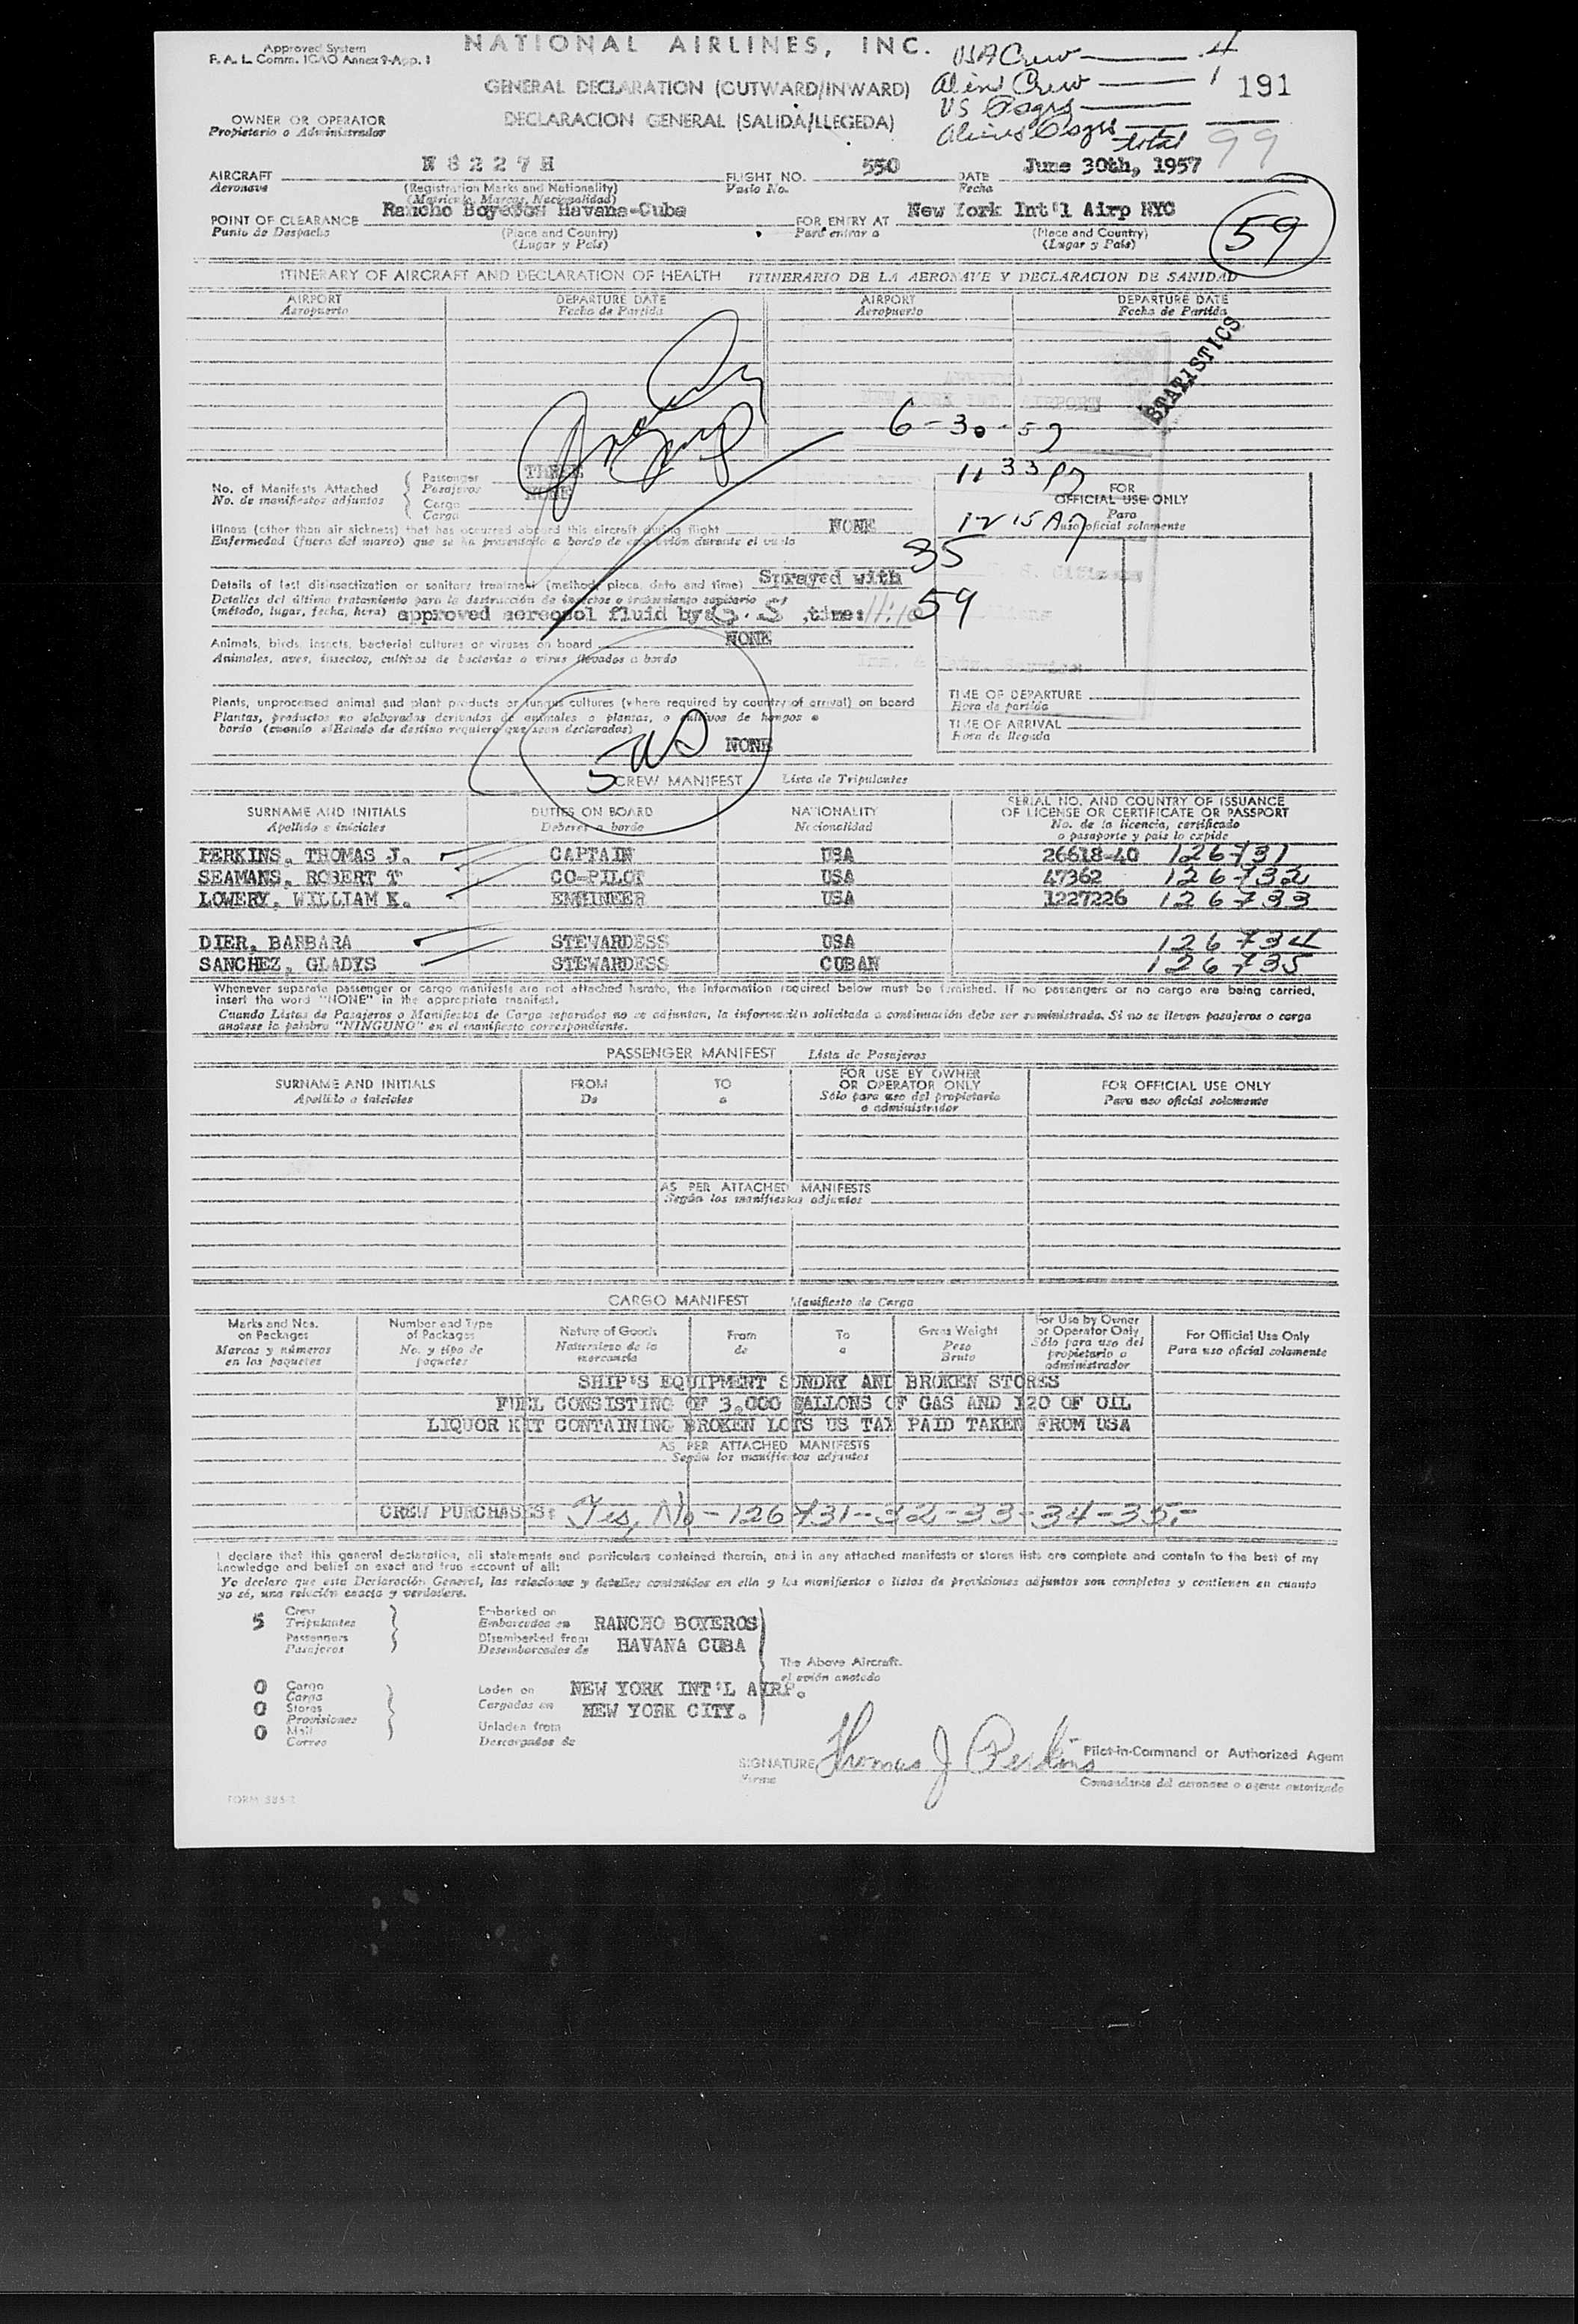 Approved System
F. A. L. Comm. ICAO Annex 9-App. 1
NATIONAL AIRLINES, INC.
USA Crew 4
Aliens Crew 1
191
GENERAL DECLARATION (OUTWARD/INWARD)
US Psgrs
OWNER OR OPERATOR
Propietario o Administrador
DECLARACION GENERAL (SALIDA/LLEGEDA)
Aliens Psgrs
total 99
AIRCRAFT N 8 2 2 7 H FLIGHT NO. 550 DATE June 30th, 1957
Aeronave (Registration Marks and Nationality) Vuelo No. Fecha
(Matricula, Marcas, Nacionalidad)
POINT OF CLEARANCE Rancho Boyeros Havana-Cuba FOR ENTRY AT New York Int'l Airp NYC
Punto de Despacho (Place and Country) Para entrar a (Place and Country)
(Lugar y País) (Lugar y País)
59
ITINERARY OF AIRCRAFT AND DECLARATION OF HEALTH ITINERARIO DE LA AERONAVE Y DECLARACION DE SANIDAD
AIRPORT DEPARTURE DATE AIRPORT DEPARTURE DATE
Aeropuerto Fecha de Partida Aeropuerto Fecha de Partida
STATISTICS
6-30-57
11 33 PM
No. of Manifests Attached Passenger THREE
No. de manifiestos adjuntos Pasajeros NONE
Cargo
Carga
FOR
OFFICIAL USE ONLY
Para
uso oficial solamente
12 15 AM
Illness (other than air sickness) that has occurred aboard this aircraft during flight NONE
Enfermedad (fuera del mareo) que se ha presentado a bordo de este avión durante el vuelo
35
Details of last disinsectization or sanitary treatment (method, place, date and time) Sprayed with
Detalles del último tratamiento para la destrucción de insectos o tratamiento sanitario
(método, lugar, fecha, hora) approved aereosol fluid by: G.S ,time: 11:10
59
Animals, birds, insects, bacterial cultures or viruses on board NONE
Animales, aves, insectos, cultivos de bacterias o virus llevados a bordo
Plants, unprocessed animal and plant products or fungus cultures (where required by country of arrival) on board
Plantas, productos no elaborados derivados de animales o plantas, o cultivos de hongos a
bordo (cuando el Estado de destino requiere que sean declarados) NONE
TIME OF DEPARTURE
Hora de partida
TIME OF ARRIVAL
Hora de llegada
CREW MANIFEST Lista de Tripulantes
SURNAME AND INITIALS DUTIES ON BOARD NATIONALITY SERIAL NO. AND COUNTRY OF ISSUANCE
OF LICENSE OR CERTIFICATE OR PASSPORT
Apellido e iniciales Deberes a bordo Nacionalidad No. de la licencia, certificado
o pasaporte y país lo expide
PERKINS, THOMAS J. CAPTAIN USA 26618-40 126731
SEAMANS, ROBERT T CO-PILOT USA 47362 126732
LOWERY, WILLIAM K. ENGINEER USA 1227226 126733
DIER, BARBARA STEWARDESS USA 126734
SANCHEZ, GLADYS STEWARDESS CUBAN 126735
Whenever separate passenger or cargo manifests are not attached hereto, the information required below must be furnished. If no passengers or no cargo are being carried,
insert the word "NONE" in the appropriate manifest.
Cuando Listas de Pasajeros o Manifiestos de Carga separados no se adjuntan, la información solicitada a continuación debe ser suministrada. Si no se lleven pasajeros o carga
anotese la palabra "NINGUNO" en el manifiesto correspondiente.
PASSENGER MANIFEST Lista de Pasajeros
SURNAME AND INITIALS FROM TO FOR USE BY OWNER
OR OPERATOR ONLY FOR OFFICIAL USE ONLY
Apellido e iniciales De a Sólo para uso del propietario
o administrador Para uso oficial solamente
AS PER ATTACHED MANIFESTS
Según los manifiestos adjuntos
CARGO MANIFEST Manifiesto de Carga
Marks and Nos.
on Packages
Marcas y números
en los paquetes
Number and Type
of Packages
No. y tipo de
paquetes
Nature of Goods
Naturaleza de la
mercancía
From
de
To
a
Gross Weight
Peso
Bruto
For Use by Owner
or Operator Only
Sólo para uso del
propietario o
administrador
For Official Use Only
Para uso oficial solamente
SHIP'S EQUIPMENT SUNDRY AND BROKEN STORES
FUEL CONSISTING OF 3,000 GALLONS OF GAS AND 120 OF OIL
LIQUOR KIT CONTAINING BROKEN LOTS US TAX PAID TAKEN FROM USA
AS PER ATTACHED MANIFESTS
Según los manifiestos adjuntos
CREW PURCHASES: Yes, No - 126731-32-33-34-35.-
I declare that this general declaration, all statements and particulars contained therein, and in any attached manifests or stores lists are complete and contain to the best of my
knowledge and belief an exact and true account of all:
Yo declaro que esta Declaración General, las relaciones y detalles contenidos en ella y los manifiestos o listas de provisiones adjuntos son completos y contienen en cuanto
yo sé, una relación exacta y verdadera.
5 Crew
Tripulantes
Passengers
Pasajeros
Embarked on
Embarcados en RANCHO BOYEROS
Disembarked from
Desembarcados de HAVANA CUBA
The Above Aircraft.
el avión anotado
0 Cargo
Carga
0 Stores
Provisiones
0 Mail
Correo
Laden on NEW YORK INT'L AIRP.
Cargados en NEW YORK CITY.
Unladen from
Descargados de
SIGNATURE Thomas J Perkins Pilot-in-Command or Authorized Agent
Firma Comandante del aeronave o agente autorizado